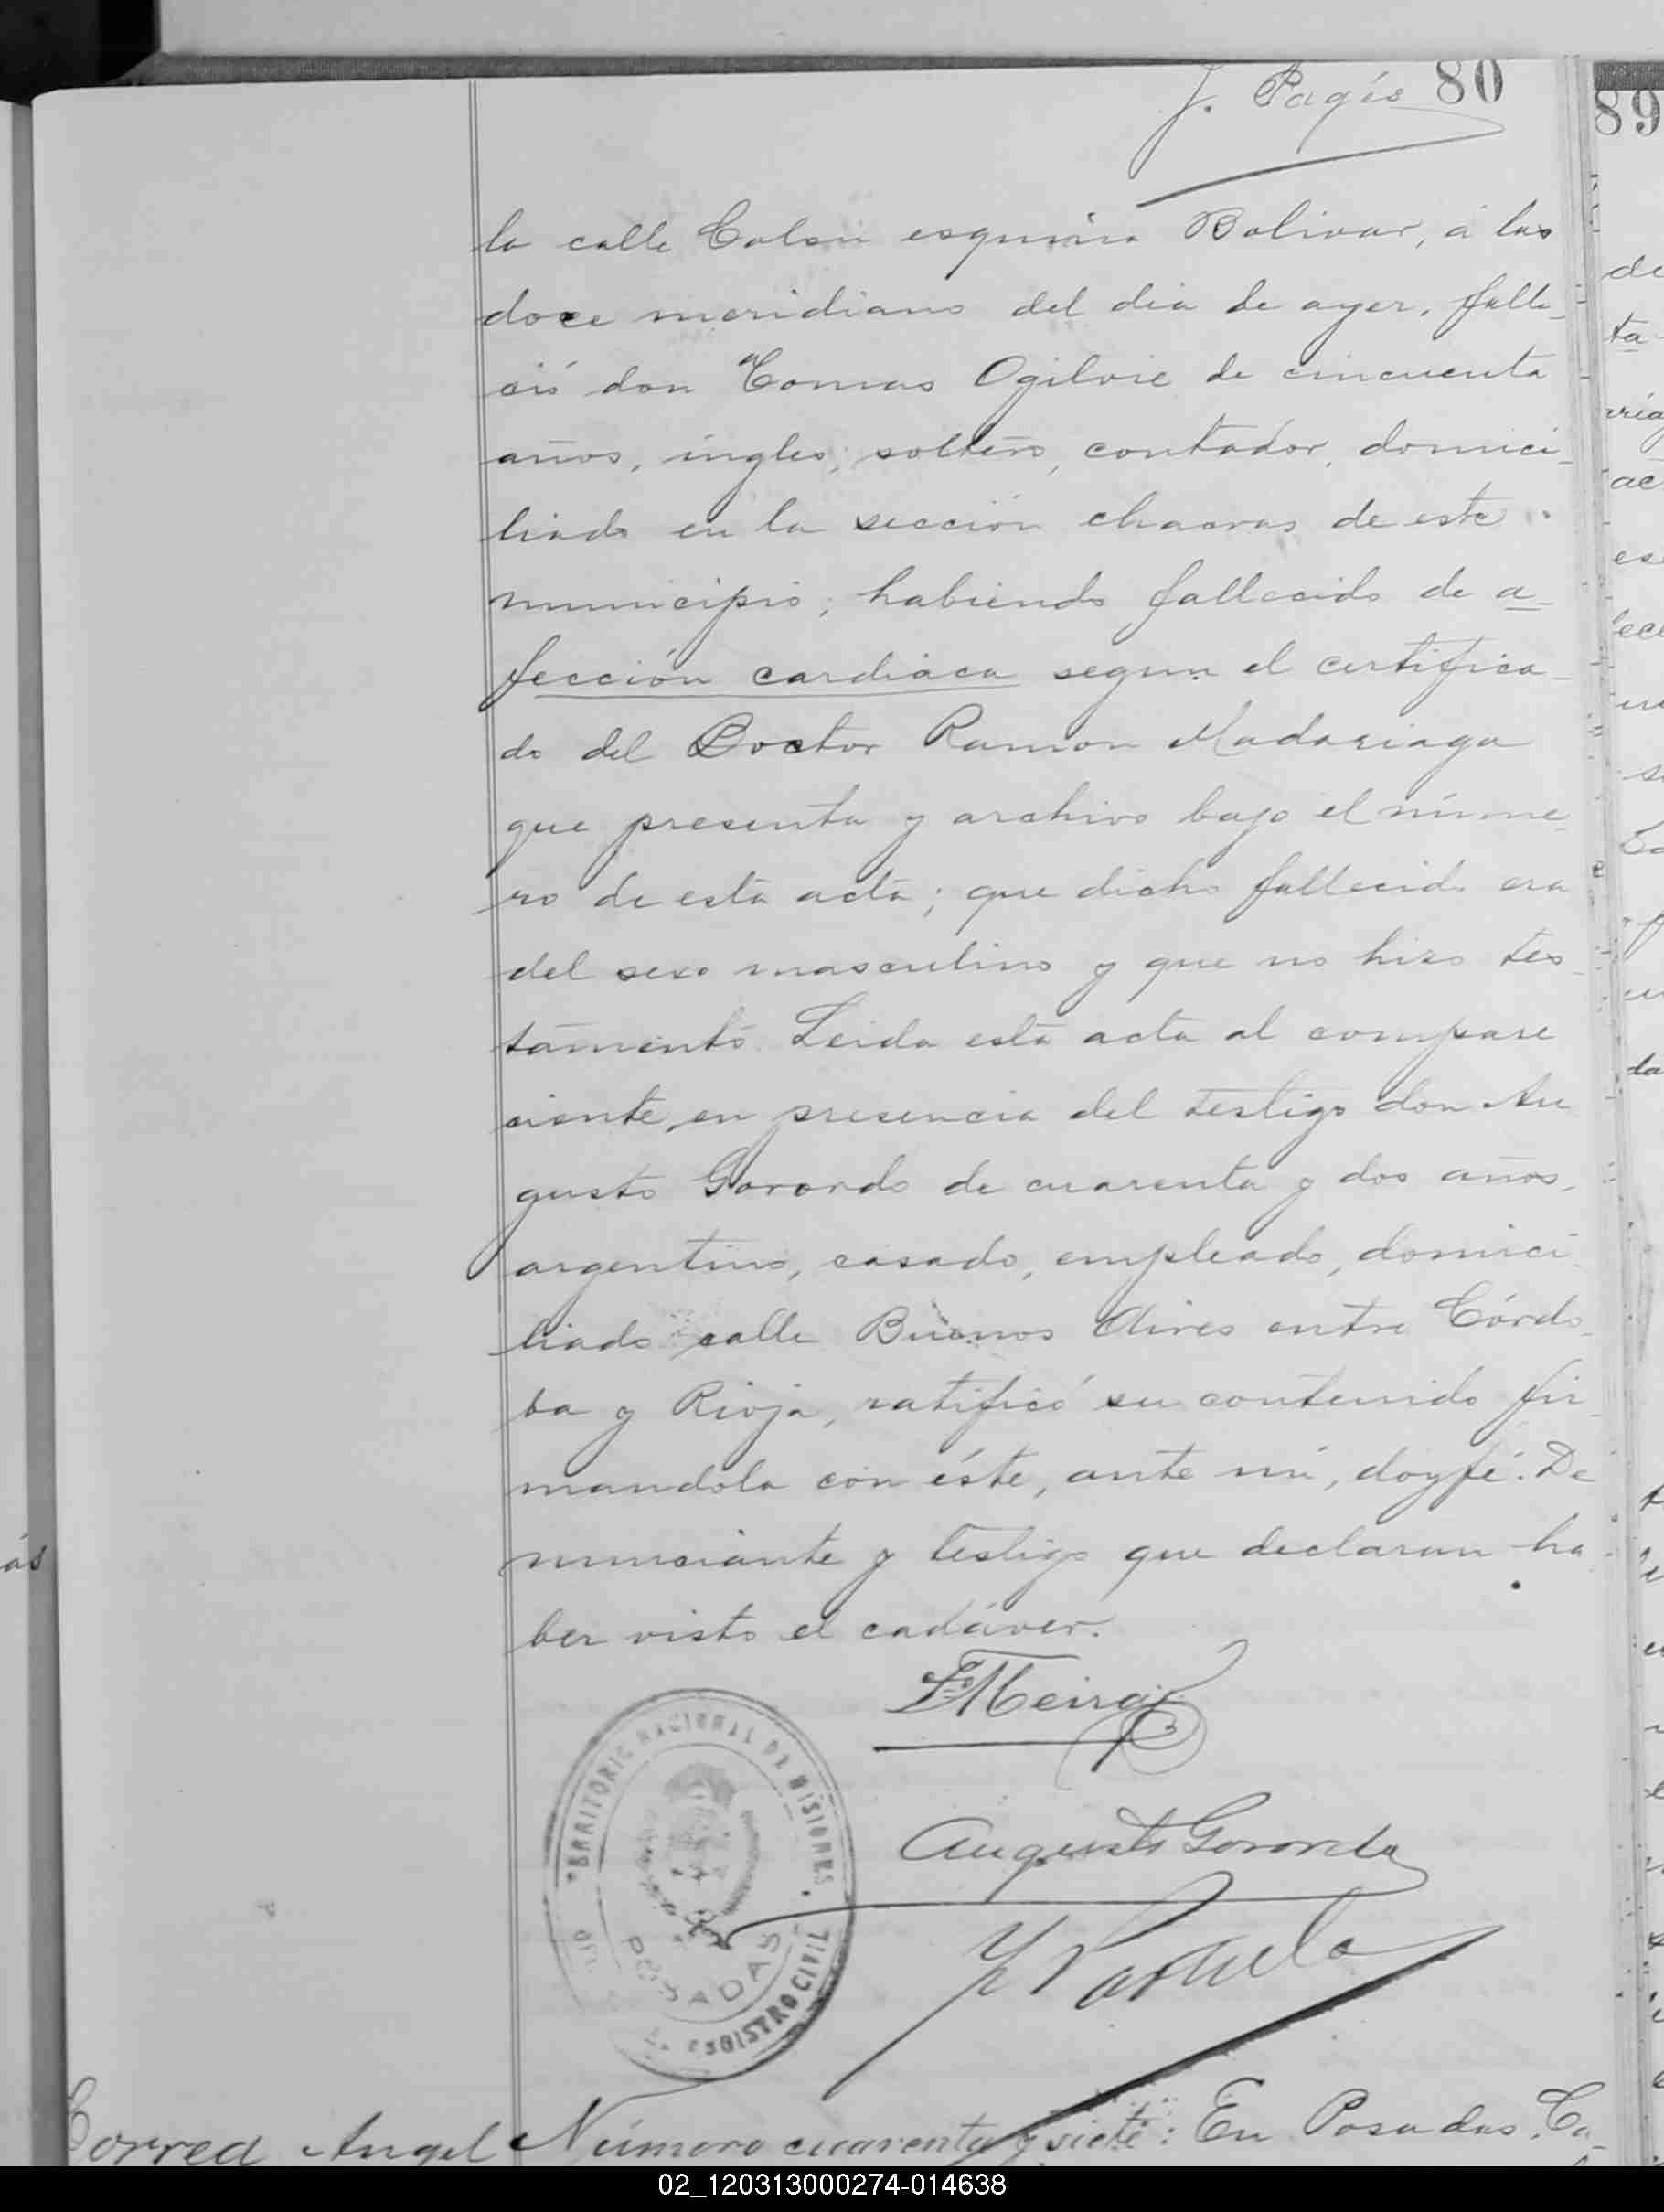 J. Pagés 80
89
la calle Colon esquina Bolivar, á las
doce meridiano del dia de ayer, falle-
ció don Tomas Ogilvie de cincuenta
años, ingles, soltero, contador, domici-
liado en la sección chacras de este
municipio; habiendo fallecido de a-
fección cardiaca segun el certifica-
do del Doctor Ramon Madariaga
que presenta y archivo bajo el núme-
ro de esta acta; que dicho fallecido era
del sexo masculino y que no hizo tes-
tamento. Leida esta acta al compare
ciente, en presencia del testigo don Au
gusto Gorordo de cuarenta y dos años,
argentino, casado, empleado, domici-
liado calle Buenos Aires entre Córdo-
ba y Rioja, ratificó su contenido fir-
mandola con éste, ante mi, doy fé. De
nunciante y testigo que declaran ha
ber visto el cadáver.
Augusto Gorordo
TERRITORIO NACIONAL DE MISIONES
POSADAS
REGISTRO CIVIL
Correa Angel Número cuarenta y siete: En Posadas, Ca-
02_120313000274-014638